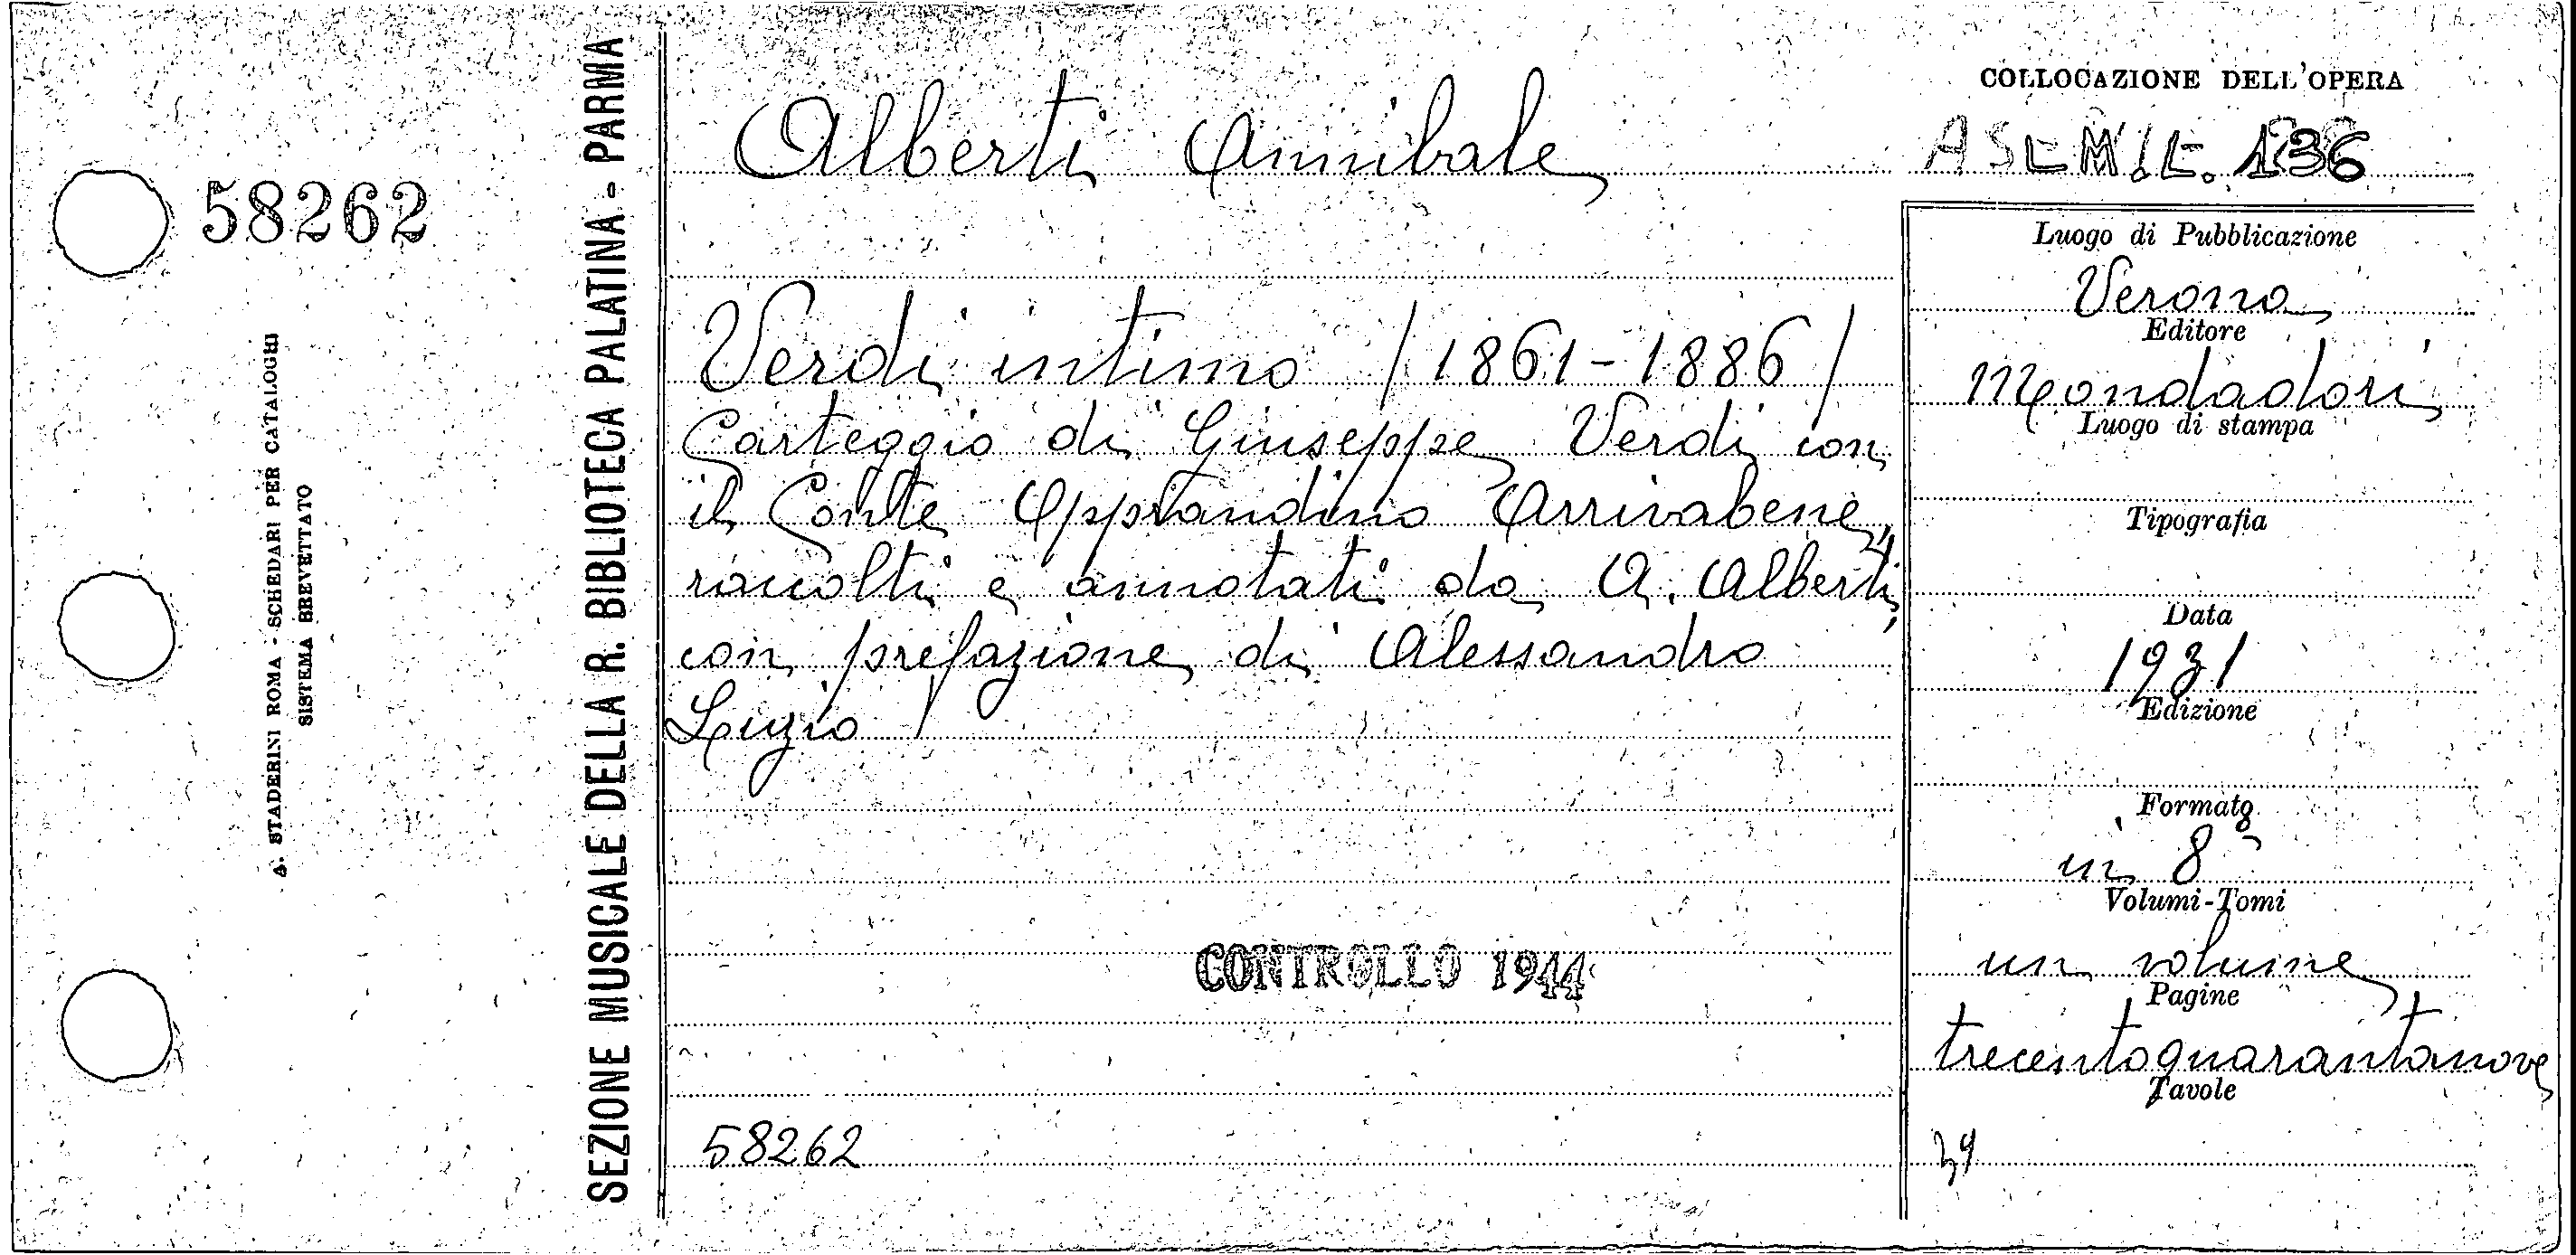 58262
A. STADERINI ROMA - SCHEDARI PER CATALOGHI
SISTEMA BREVETTATO
SEZIONE MUSICALE DELLA R. BIBLIOTECA PALATINA - PARMA
Alberti Annibale
Verdi intimo /1861-1886/
Carteggio di Giuseppe Verdi con
il Conte Opprandino Arrivabene,
raccolti e annotati da A. Alberti,
con prefazione di Alessandro
Luzio
CONTROLLO 1944
58262
COLLOCAZIONE DELL'OPERA
136
Luogo di Pubblicazione
Verona
Editore
Mondadori
Luogo di stampa
Tipografia
Data
1931
Edizione
Formato
in 8°
Volumi-Tomi
un volume
Pagine
trecentoquarantanove
Tavole